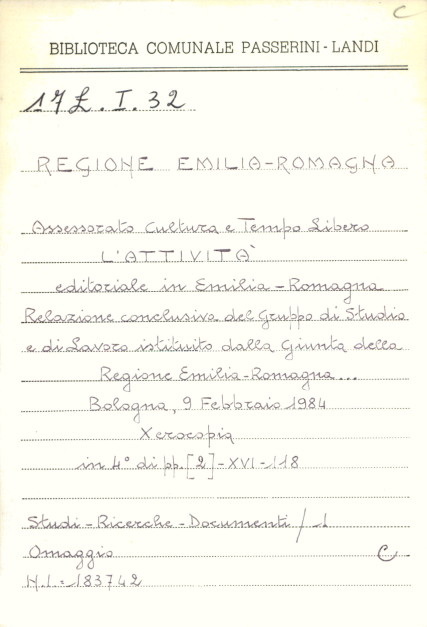 C
BIBLIOTECA COMUNALE PASSERINI - LANDI
17 L. I. 32
REGIONE EMILIA-ROMAGNA
Assessorato Cultura e Tempo Libero
L'ATTIVITÀ
editoriale in Emilia-Romagna
Relazione conclusiva del Gruppo di Studio
e di Lavoro istituito dalla Giunta della
Regione Emilia-Romagna...
Bologna, 9 Febbraio 1984
Xerocopia
in 4° di pp. [2]-XVI-118
Studi-Ricerche-Documenti/1
Omaggio C
N.I.=183742